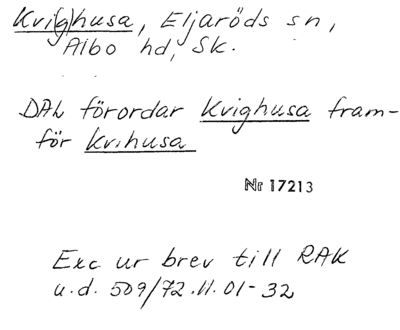 Kvi(g)husa, Eljaröds sn,
Albo hd, Sk.
DAL förordar Kvighusa fram-
för Kvihusa
Nr 17213
Exc ur brev till RAK
u.d. 509/72.11.01-32